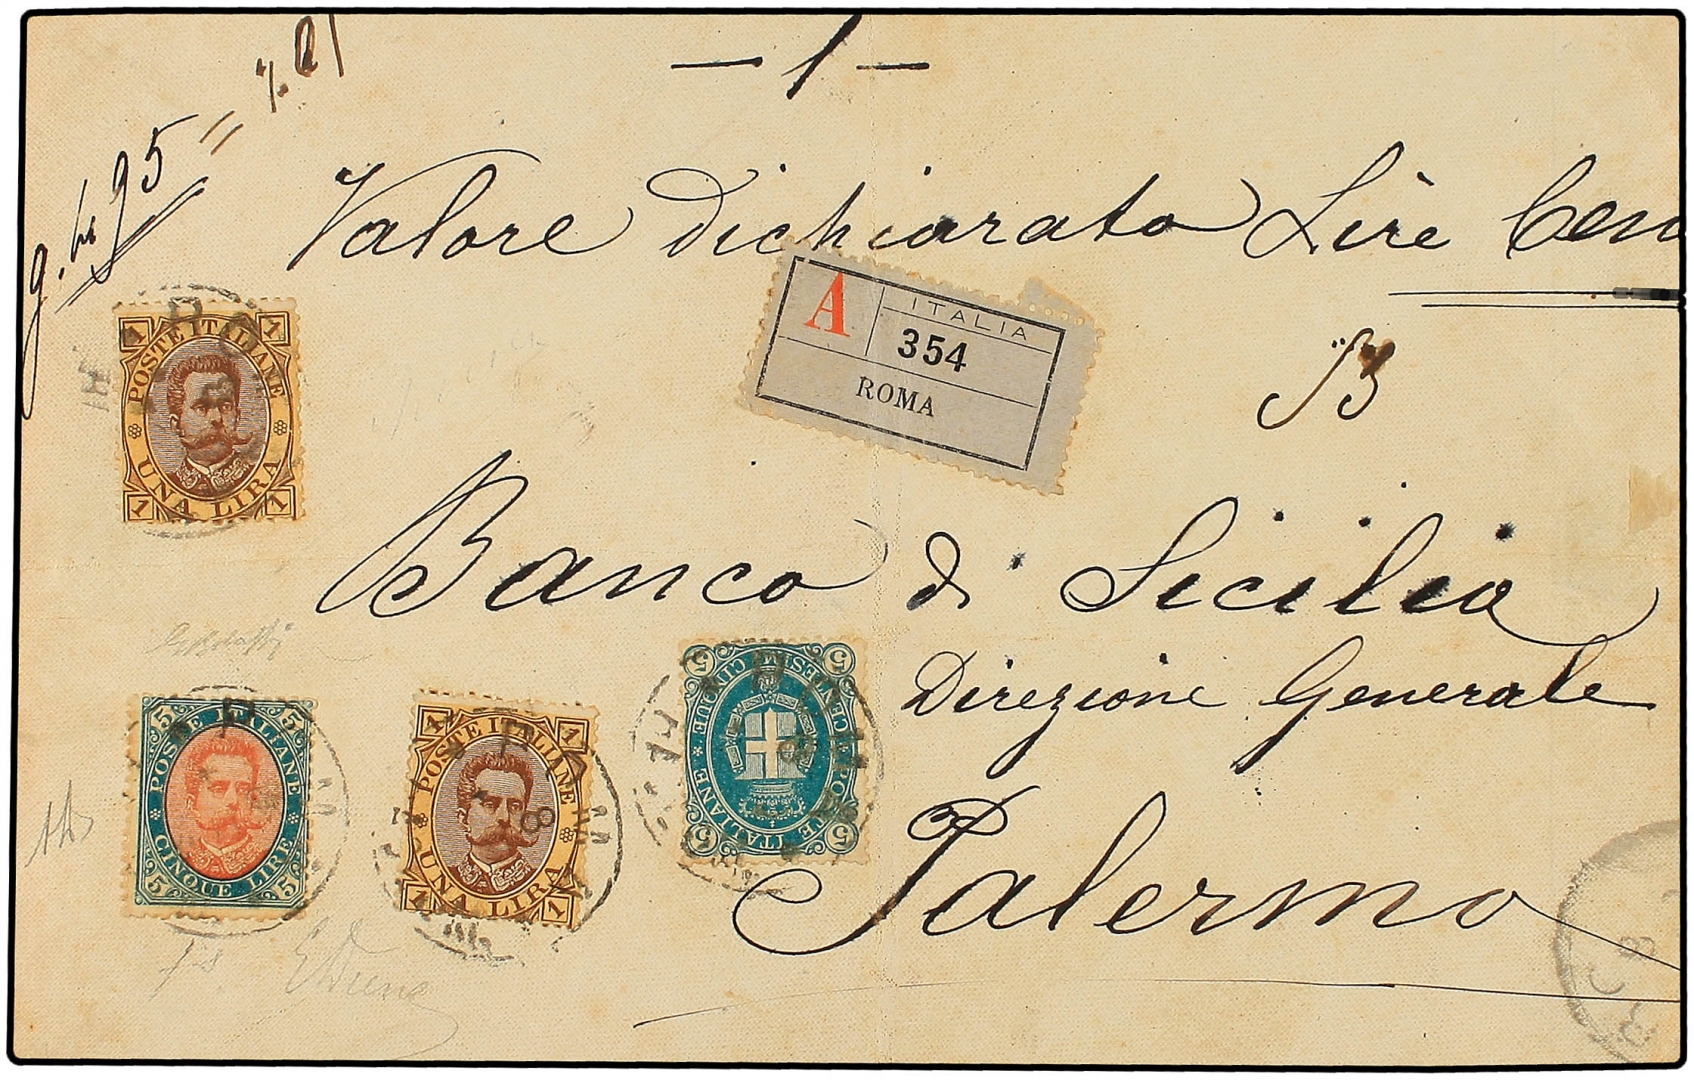 — 1 —
Valore dichiarato Lire Cen
A
ITALIA
354
ROMA
1 POSTE ITALIANE 1
1 UNA LIRA 1
Banco di Sicilia
Direzione Generale
Palermo
5 POSTE ITALIANE 5
5 CINQUE LIRE 5
1 POSTE ITALIANE 1
1 UNA LIRA 1
5 POSTE ITALIANE 5
5 CENTESIMI CINQUE 5
EDiena